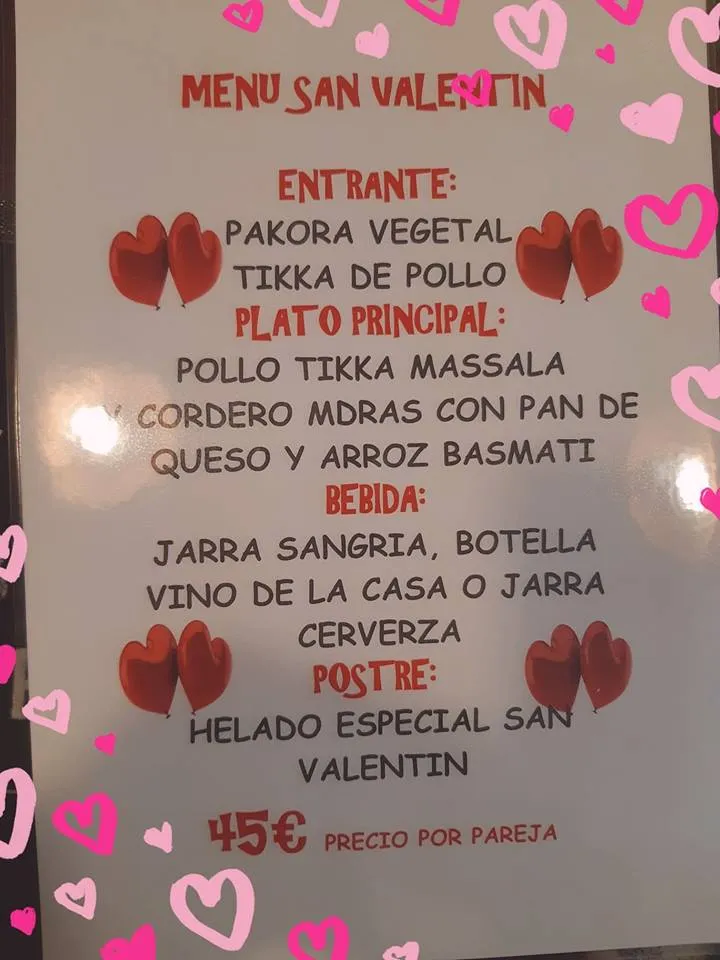 MENU SAN VALENTIN
ENTRANTE:
PAKORA VEGETAL
TIKKA DE POLLO
PLATO PRINCIPAL:
POLLO TIKKA MASSALA
Y CORDERO MDRAS CON PAN DE
QUESO Y ARROZ BASMATI
BEBIDA:
JARRA SANGRIA, BOTELLA
VINO DE LA CASA O JARRA
CERVERZA
POSTRE:
HELADO ESPECIAL SAN
VALENTIN
45€ PRECIO POR PAREJA